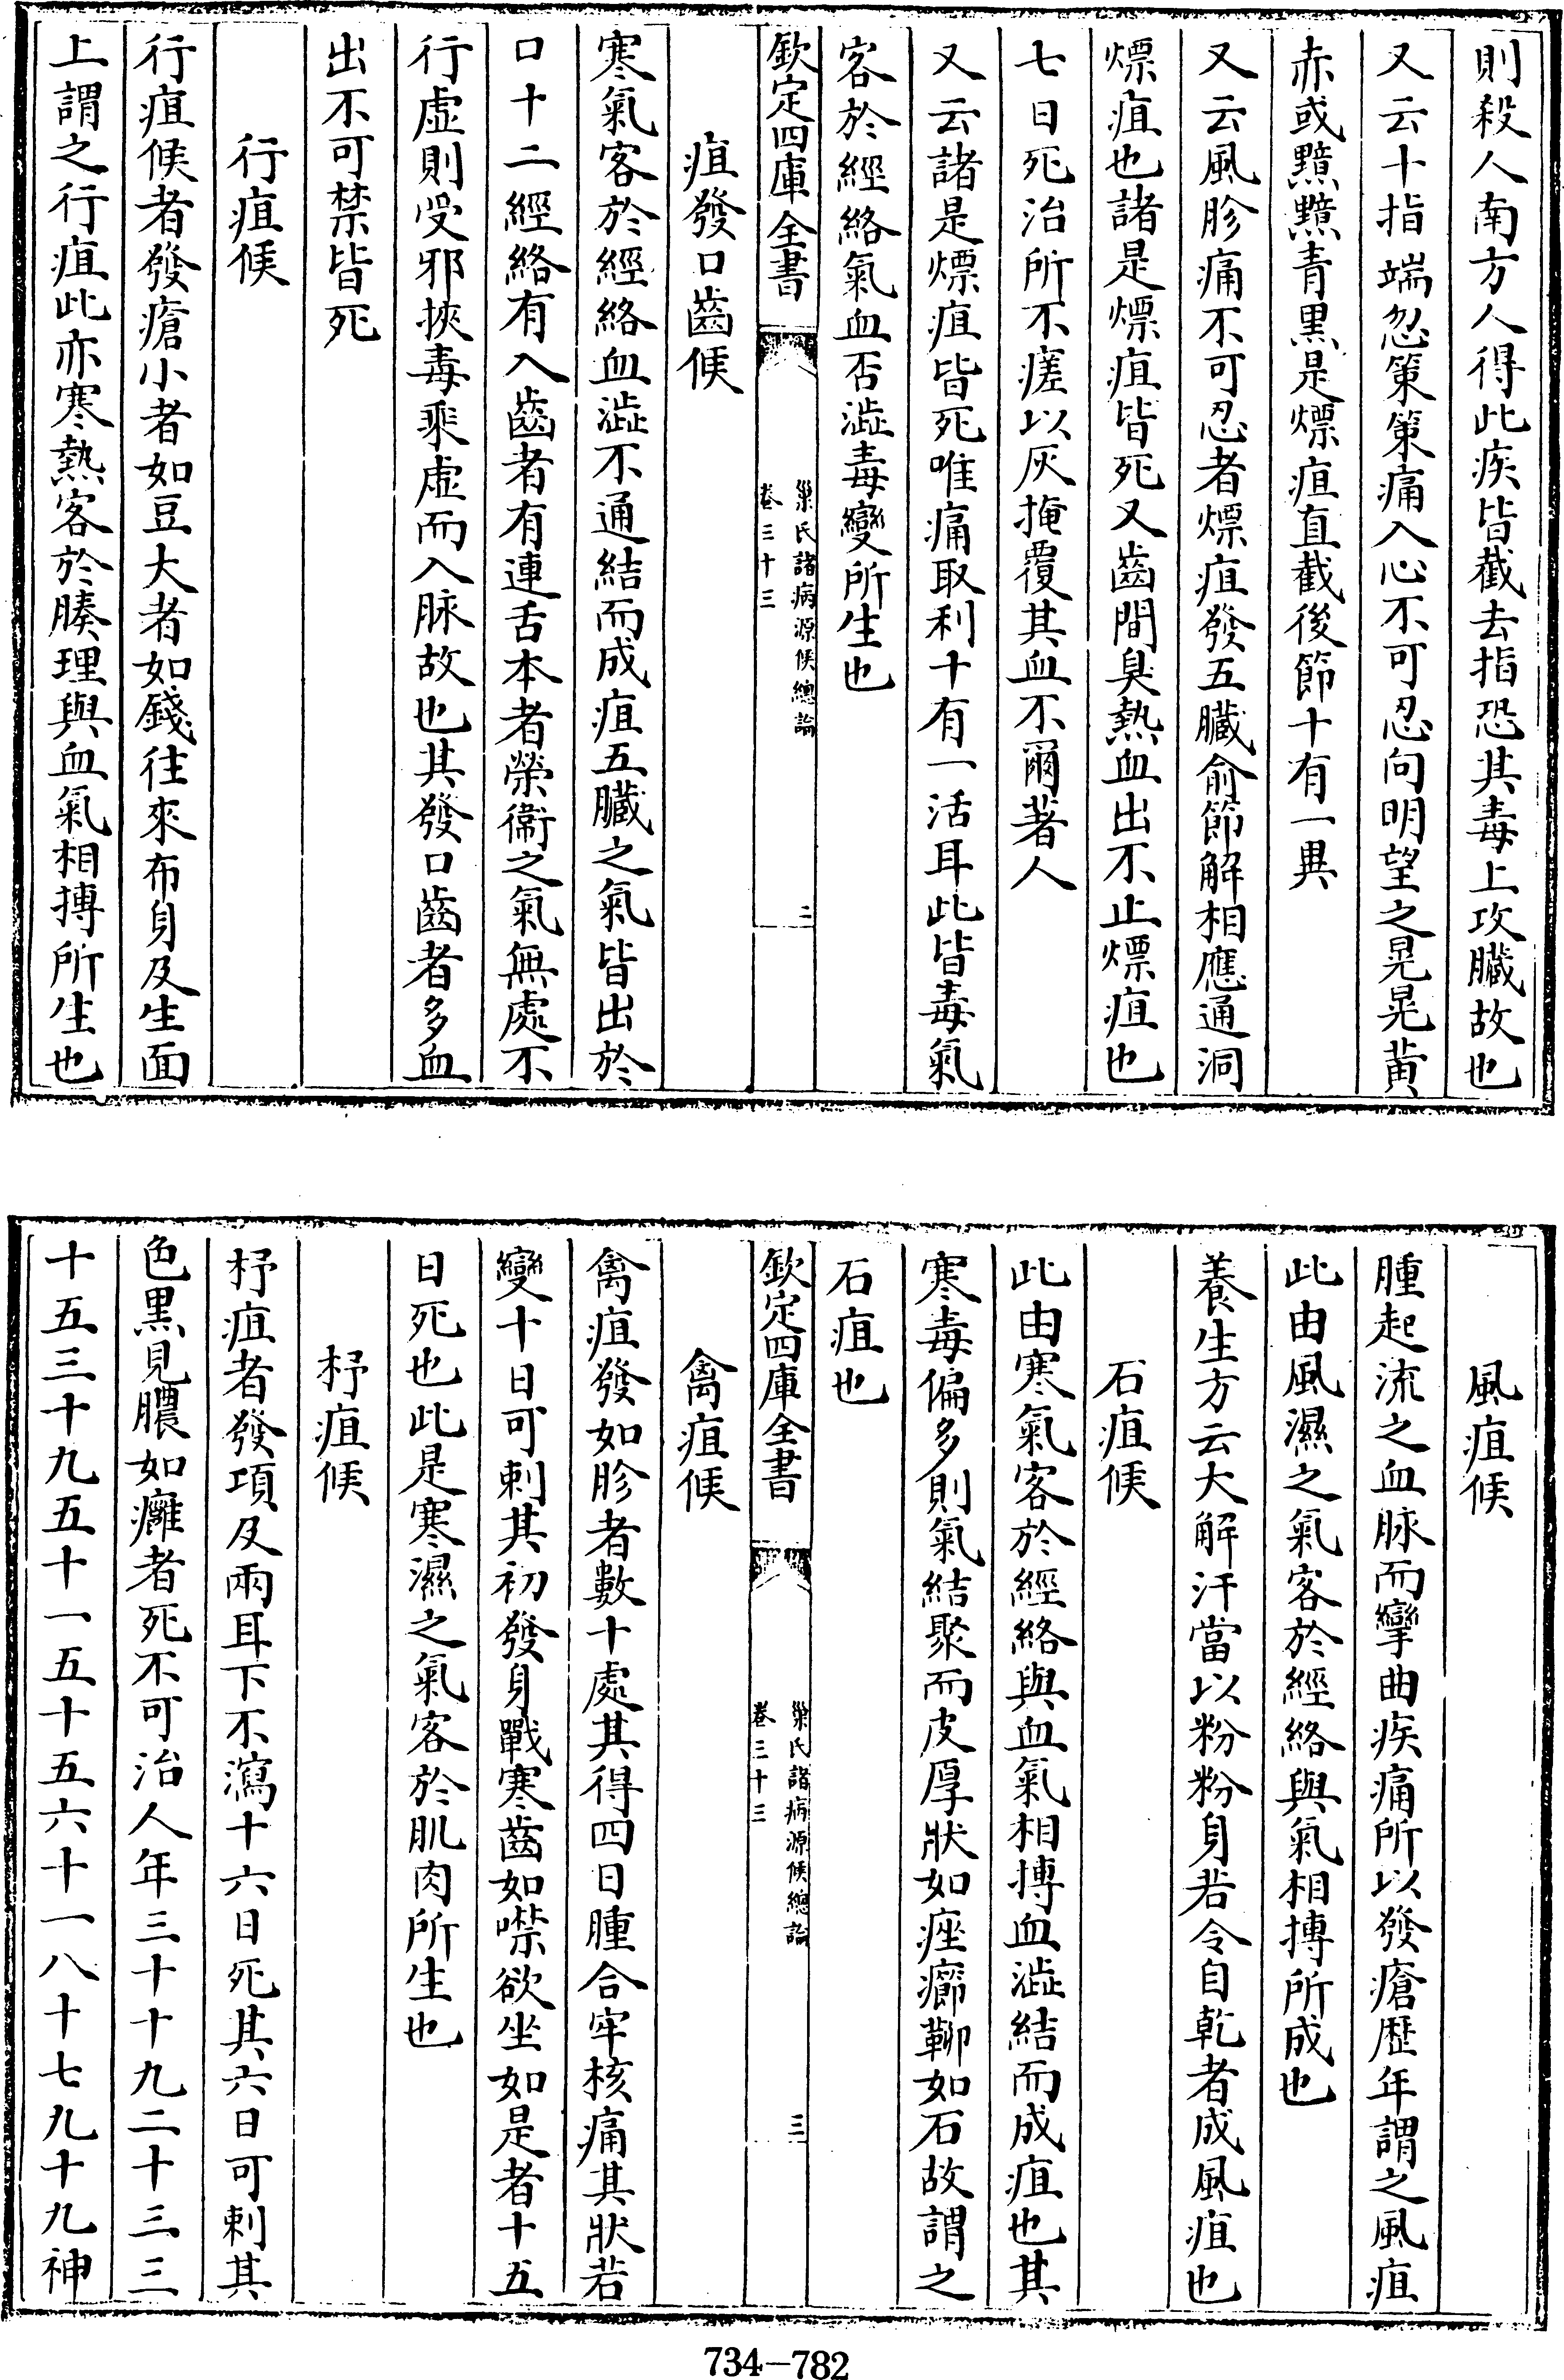 則殺人南方人得此疾皆截去指恐其毒上攻臟故也
又云十指端忽策策痛入心不可忍向明望之晃晃黄
赤或黯黯青黒是熛疽直截後節十有一𢍆
又云風胗痛不可忍者熛疽發五臓俞節解相應通洞
熛疽也諸是熛疽皆死又齒間臭熱血出不止熛疽也
七日死治所不瘥以灰掩覆其血不爾著人
又云諸是熛疽皆死唯痛取利十有一活耳此皆毒氣
客於經絡氣血否澁毒變所生也
欽定四庫全書
巢氏諸病源候總論
卷三十三
二
疽發口齒候
寒氣客於經絡血澁不通結而成疽五臓之氣皆出於
口十二經絡有入齒者有連舌本者榮衞之氣無處不
行虚則受邪挾毒乘虚而入脉故也其發口齒者多血
出不可禁皆死
行疽候
行疽候者發瘡小者如豆大者如錢往來布身及生面
上謂之行疽此亦寒熱客於腠理與血氣相搏所生也
風疽候
腫起流之血脉而攣曲疾痛所以發瘡歴年謂之風疽
此由風濕之氣客於經絡與氣相搏所成也
養生方云大解汗當以粉粉身若令自乾者成風疽也
石疽候
此由寒氣客於經絡與血氣相搏血澁結而成疽也其
寒毒偏多則氣結聚而皮厚狀如痤癤鞕如石故謂之
石疽也
欽定四庫全書
巢氏諸病源候總論
卷三十三
三
禽疽候
禽疽發如胗者數十處其得四日腫合牢核痛其狀若
變十日可刺其初發身戰寒齒如噤欲坐如是者十五
日死也此是寒濕之氣客於肌肉所生也
杼疽候
杼疽者發項及兩耳下不瀉十六日死其六日可刺其
色黒見膿如癰者死不可治人年三十十九二十三三
十五三十九五十一五十五六十一八十七九十九神
734-782